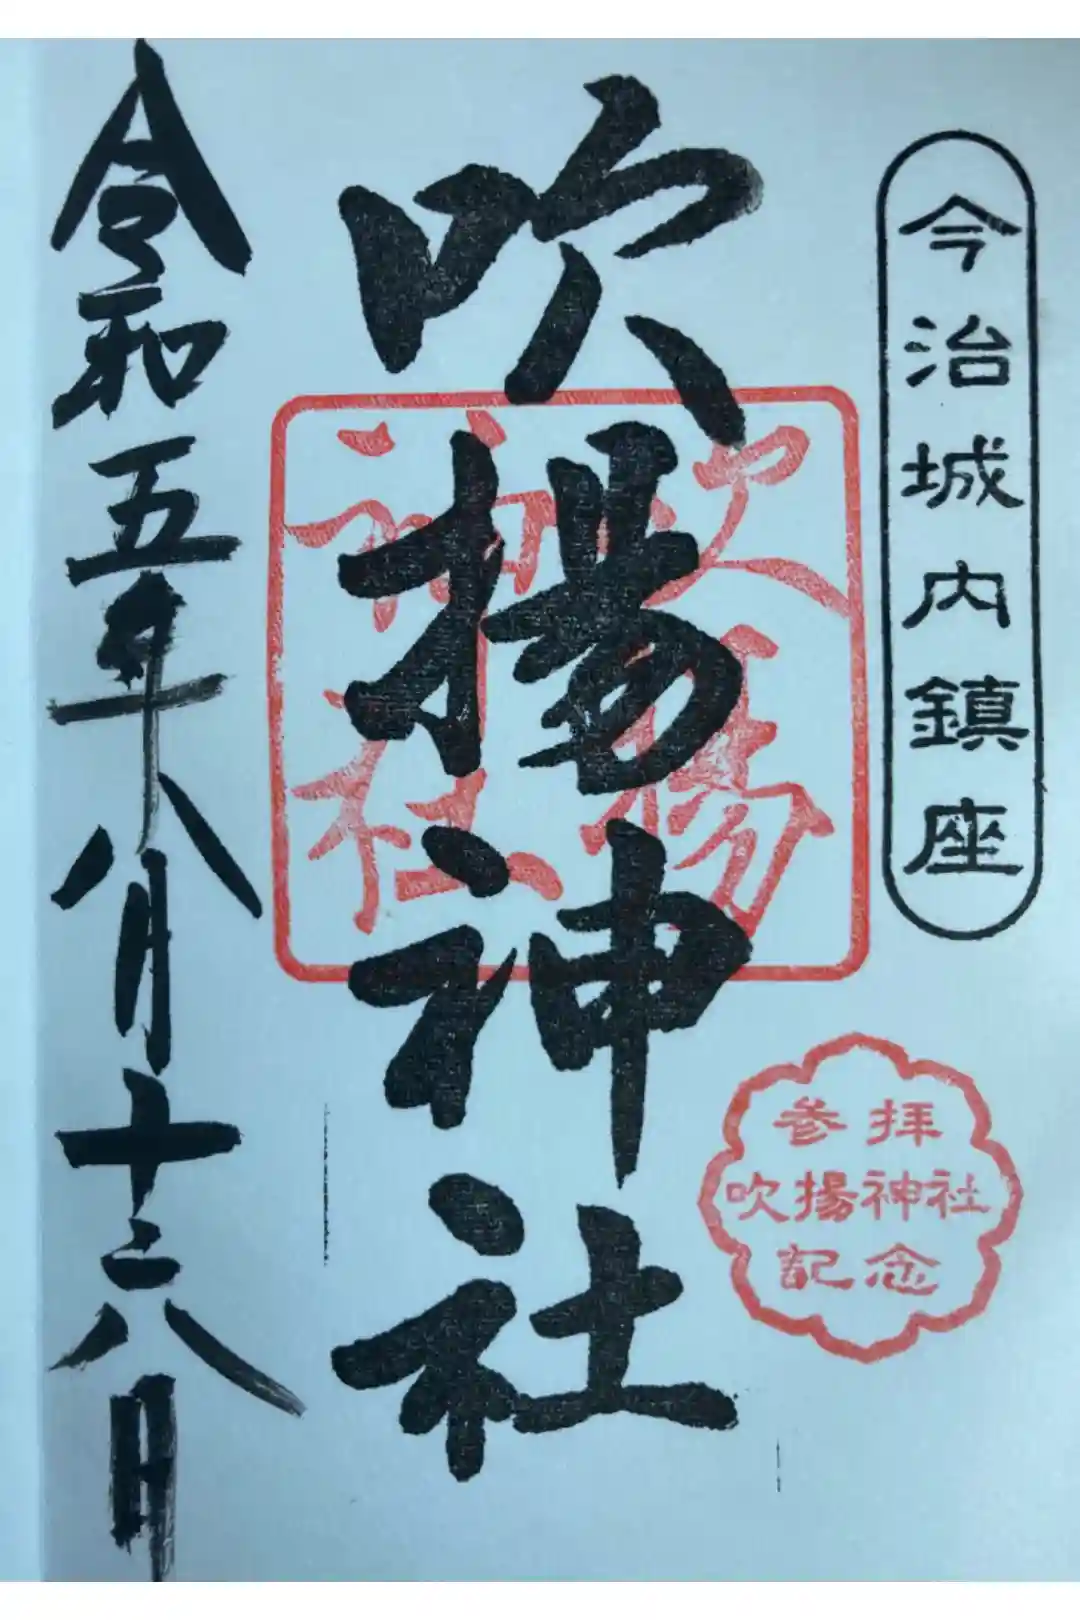 今治城内鎮座
参拝
吹揚神社
記念
吹揚神社
吹揚
神社
令和五年八月十六日